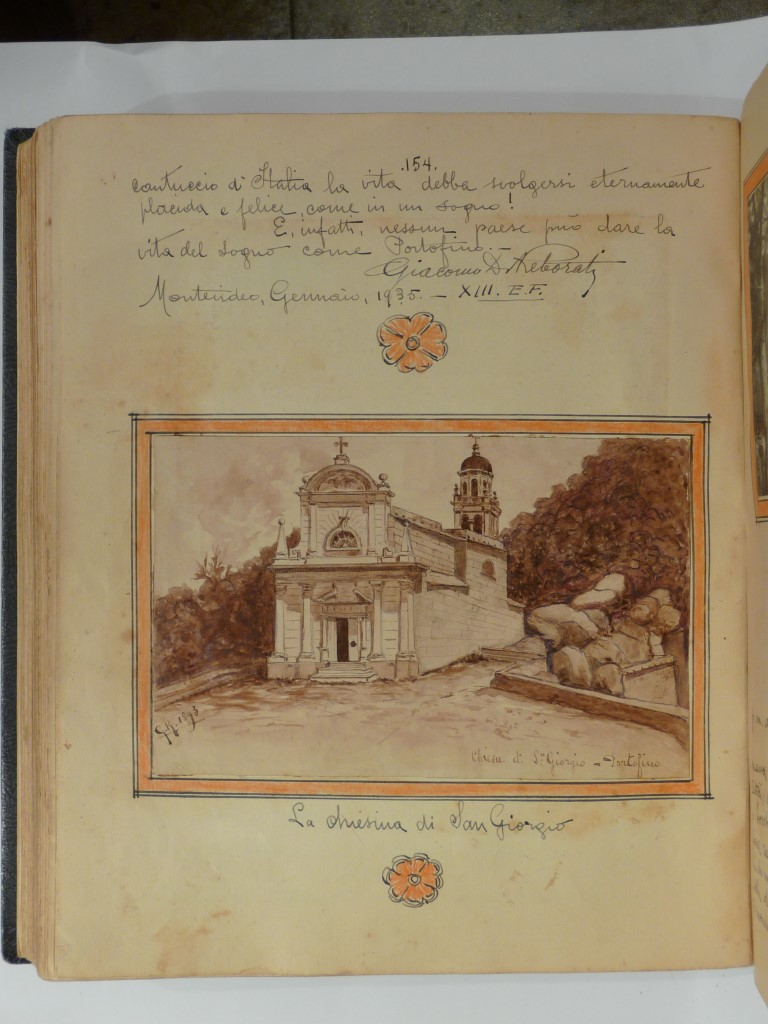 .154.
cantuccio d'Italia la vita debba svolgersi eternamente
placida e felice, come in un sogno!
E, infatti, nessun paese può dare la
vita del sogno come Portofino.—
Giacomo D.
Montevideo, Gennaio, 1935.— XIII. E.F.
Chiesa di S.n Giorgio - Portofino
La chiesina di San Giorgio